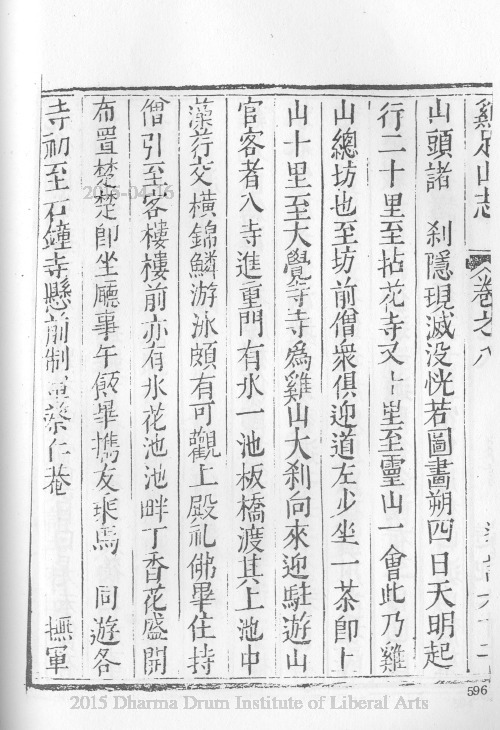 雞足山志　卷之八
山頭諸　刹隱現滅没恍若圖畫朔四日天明起
行二十里至拈花寺又上里至靈山一會此乃雞
山總坊也至坊前僧衆俱迎道左少坐一茶卽上
山十里至大覺寺寺爲雞山大刹向來迎駐遊山
官客者入寺進重門有水一池板橋渡其上池中
藻荇交橫錦鱗游泳頗有可觀上殿礼佛畢住持
僧引至客樓樓前亦有水花池池畔丁香花盛開
布置楚楚卽坐廳事午飯畢携友乘馬　同遊各
寺初至石鐘寺懸前制軍蔡仁菴　撫軍
596
2015 Dharma Drum Institute of Liberal Arts